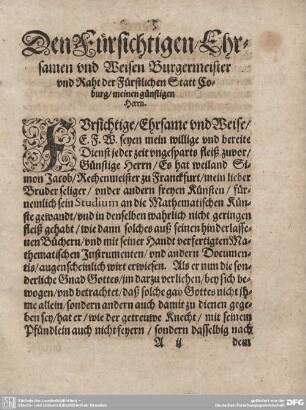 Den Fürsichtigen/Ehr-
samen vnd Weisen Burgermeister
vnd Raht der Fürstlichen Statt Co-
burg/meinen günstigen
Herrn.
FVrsichtige/Ehrsame vnd Weise/
E. F. W. seyen mein willige vnd bereite
Dienst jeder zeit vngesparts fleiß zuvor/
Günstige Herrn/Es hat weiland Si-
mon Jacob/Rechenmeister zu Franckfurt/mein lieber
Bruder seliger/vnder andern freyen Künsten/für-
nemlich sein Studium an die Mathematischen Kün-
ste gewandt/vnd in denselben warlich nicht geringen
fleiß gehabt/wie dann solches auß seinen hinderlasse-
nen Büchern/vnd mit seiner Hand verfertigten Ma-
thematischen Instrumenten/vnd andern Documen-
tis/augenscheinlich wirt erwiesen. Als er nun die son-
derliche Gnad Gottes/im darzu verliehen/bey sich be-
wogen/vnd betrachtet/daß solche gab Gottes nicht ih-
me allein/sondern andern auch damit zu dienen gege-
ben sey/hat er/wie der getreuwe Knecht/mit seinem
Pfündlein auch nicht feyern/sondern dasselbig nach
A ij dem